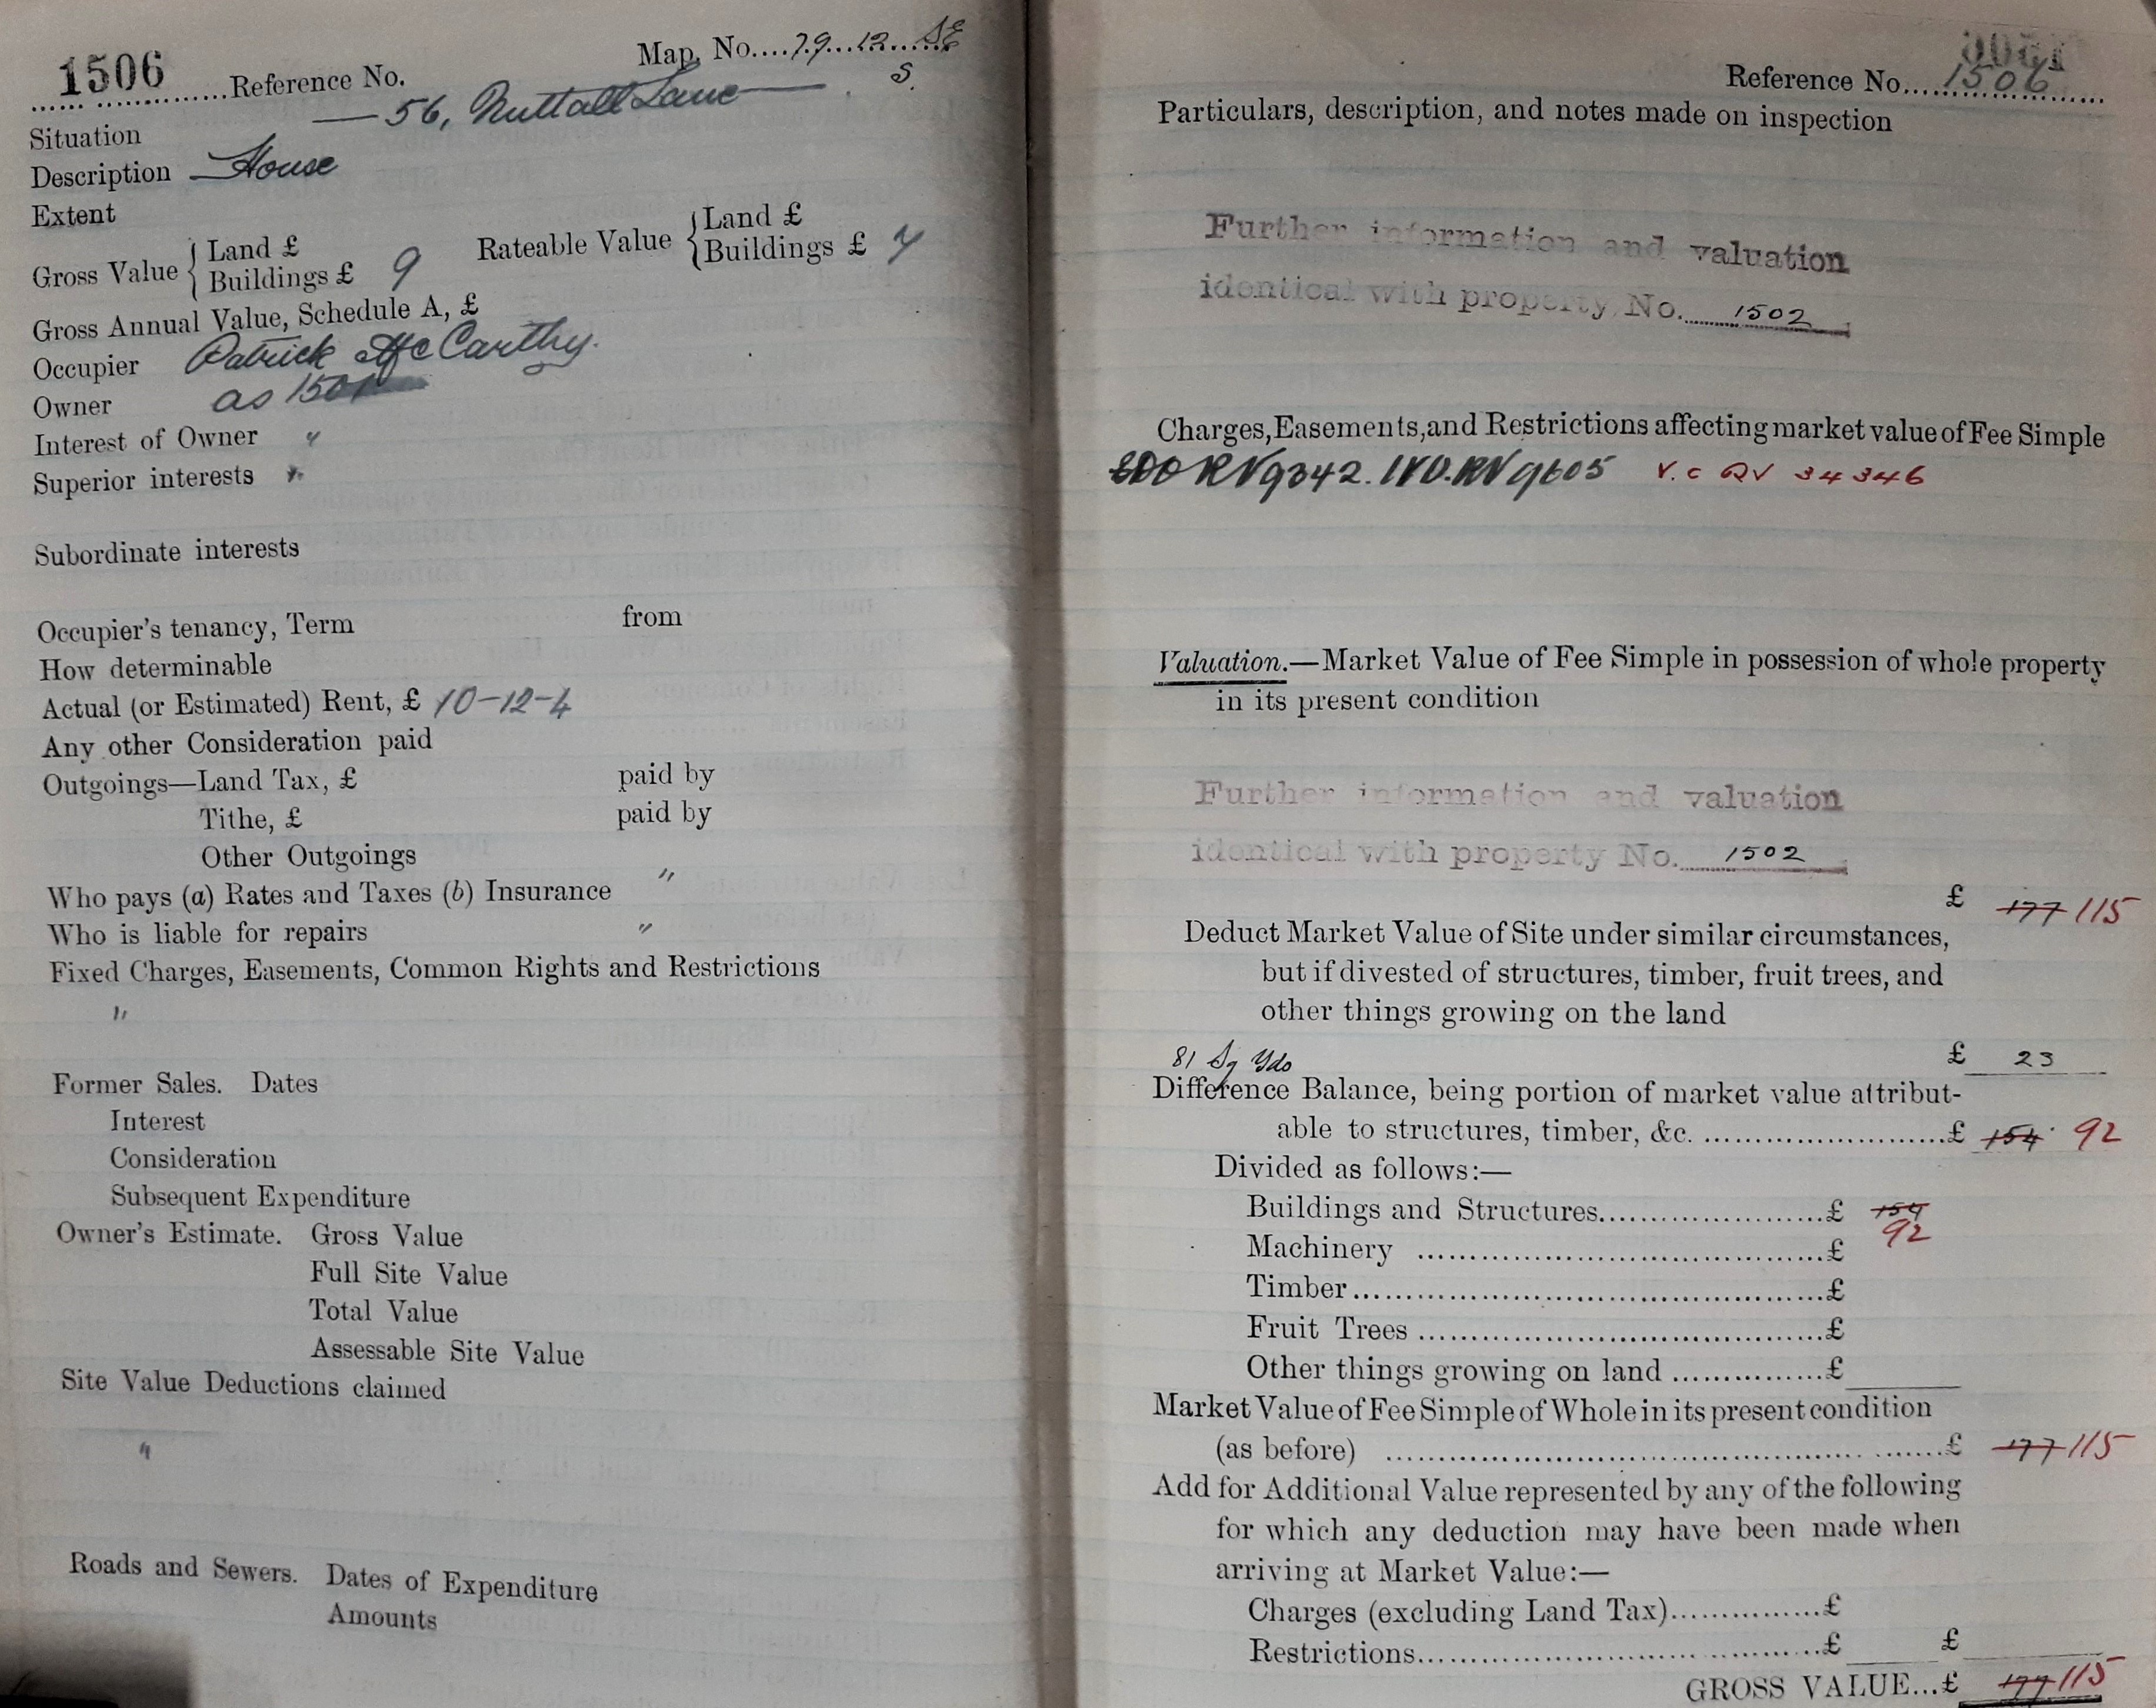 1506 Reference No. Map. No. 79.12. SE
S.
Situation — 56, Nuttall Lane — .
Description — House
Extent
Gross Value { Land £ Rateable Value { Land £
Buildings £ 9 Buildings £ 7
Gross Annual Value, Schedule A, £
Occupier Patrick McCarthy.
Owner as 1501
Interest of Owner "
Superior interests "
Subordinate interests
Occupier's tenancy, Term from
How determinable
Actual (or Estimated) Rent, £ 10-12-4
Any other Consideration paid
Outgoings—Land Tax, £ paid by
Tithe, £ paid by
Other Outgoings
Who pays (a) Rates and Taxes (b) Insurance "
Who is liable for repairs "
Fixed Charges, Easements, Common Rights and Restrictions
"
Former Sales. Dates
Interest
Consideration
Subsequent Expenditure
Owner's Estimate. Gross Value
Full Site Value
Total Value
Assessable Site Value
Site Value Deductions claimed
"
Roads and Sewers. Dates of Expenditure
Amounts
Reference No. 1506
Particulars, description, and notes made on inspection
Further information and valuation
identical with property No. 1502
Charges, Easements, and Restrictions affecting market value of Fee Simple
RV 9342. IVD. RV 9605 V.C RV 34346
Valuation.—Market Value of Fee Simple in possession of whole property
in its present condition
Further information and valuation
identical with property No. 1502
£ 177 115
Deduct Market Value of Site under similar circumstances,
but if divested of structures, timber, fruit trees, and
other things growing on the land
81 Sq Yds £ 23
Difference Balance, being portion of market value attribut-
able to structures, timber, &c. £ 154 92
Divided as follows:—
Buildings and Structures £ 154
92
Machinery £
Timber £
Fruit Trees £
Other things growing on land £
Market Value of Fee Simple of Whole in its present condition
(as before) £ 177 115
Add for Additional Value represented by any of the following
for which any deduction may have been made when
arriving at Market Value:—
Charges (excluding Land Tax) £
Restrictions £ £
GROSS VALUE...£ 177 115